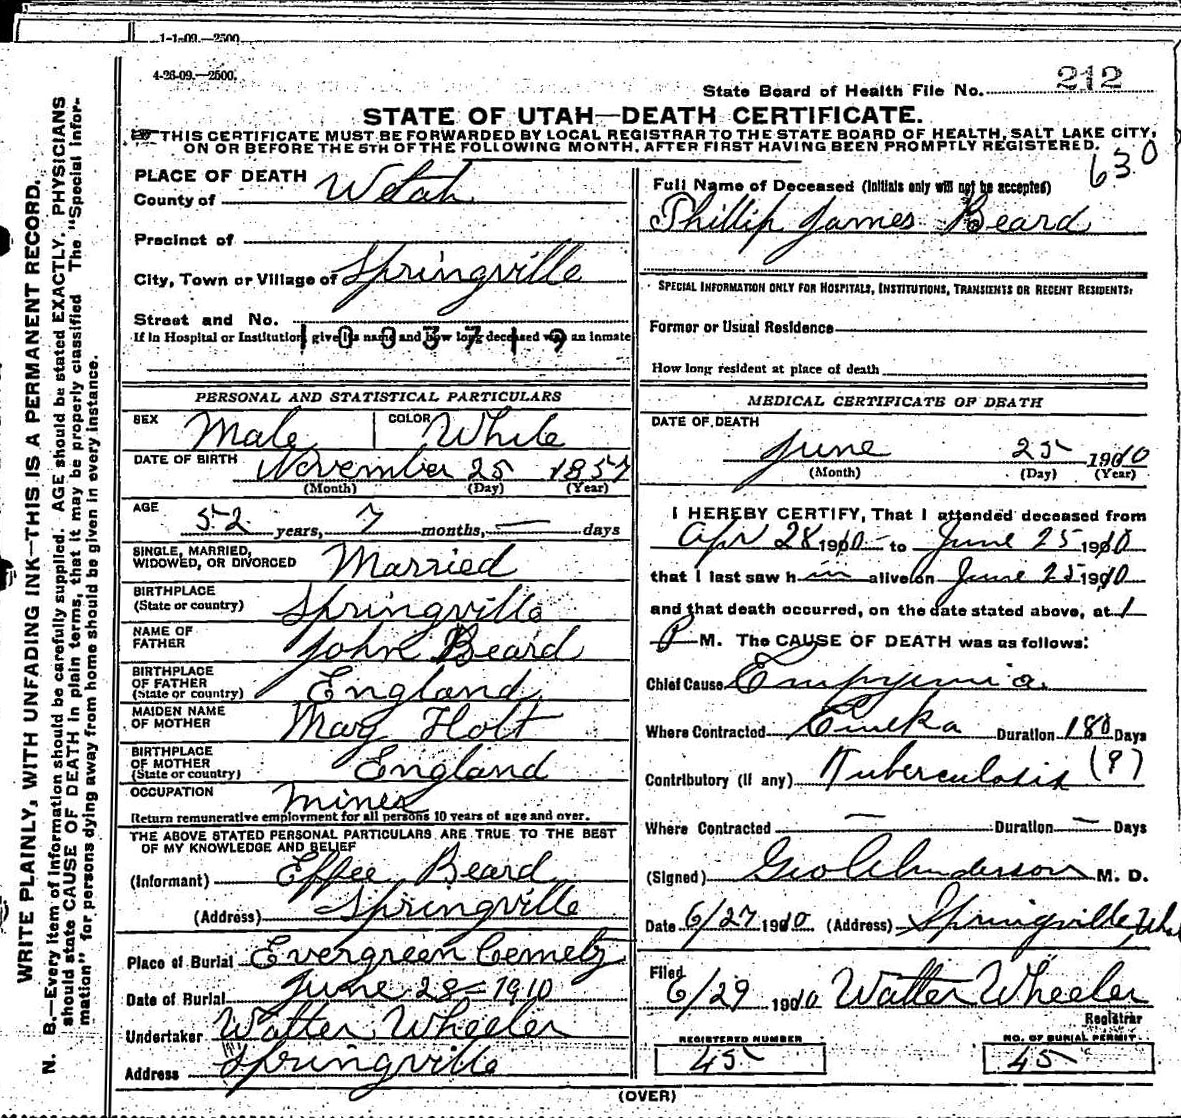 1-1-09.—2500.
4-26-09.—2500.
State Board of Health File No. 212
STATE OF UTAH—DEATH CERTIFICATE.
THIS CERTIFICATE MUST BE FORWARDED BY LOCAL REGISTRAR TO THE STATE BOARD OF HEALTH, SALT LAKE CITY,
ON OR BEFORE THE 5TH OF THE FOLLOWING MONTH, AFTER FIRST HAVING BEEN PROMPTLY REGISTERED.
630
PLACE OF DEATH
County of Utah
Precinct of
City, Town or Village of Springville
Street and No.
If in Hospital or Institution, give its name and how long deceased was an inmate
1003719
PERSONAL AND STATISTICAL PARTICULARS
SEX Male COLOR White
DATE OF BIRTH November 25 1857
(Month) (Day) (Year)
AGE 52 years, 7 months, — days
SINGLE, MARRIED,
WIDOWED, OR DIVORCED Married
BIRTHPLACE
(State or country) Springville
NAME OF
FATHER John Beard
BIRTHPLACE
OF FATHER
(State or country) England
MAIDEN NAME
OF MOTHER Mary Holt
BIRTHPLACE
OF MOTHER
(State or country) England
OCCUPATION miner
Return remunerative employment for all persons 10 years of age and over.
THE ABOVE STATED PERSONAL PARTICULARS ARE TRUE TO THE BEST
OF MY KNOWLEDGE AND BELIEF
(Informant) Effee Beard
(Address) Springville
Place of Burial Evergreen
Date of Burial June 28 — 1910
Undertaker Walter Wheeler
Address Springville
Full Name of Deceased (Initials only will not be accepted)
Phillip James Beard
SPECIAL INFORMATION ONLY FOR HOSPITALS, INSTITUTIONS, TRANSIENTS OR RECENT RESIDENTS:
Former or Usual Residence
How long resident at place of death
MEDICAL CERTIFICATE OF DEATH
DATE OF DEATH
June 25 1910
(Month) (Day) (Year)
I HEREBY CERTIFY, That I attended deceased from
Apr 28 1910 to June 25 1910
that I last saw him alive on June 25 1910
and that death occurred, on the date stated above, at 1
P M. The CAUSE OF DEATH was as follows:
Chief Cause Empyemia
Where Contracted Eureka Duration 180 Days
Contributory (if any) Tuberculosis (?)
Where Contracted — Duration — Days
(Signed) Geo Anderson M. D.
Date 6/27 1910 (Address) Springville, Utah
Filed
6/29 1910 Walter Wheeler
Registrar
REGISTERED NUMBER
45
NO. OF BURIAL PERMIT
45
(OVER)
WRITE PLAINLY, WITH UNFADING INK—THIS IS A PERMANENT RECORD.
N. B.—Every item of information should be carefully supplied. AGE should be stated EXACTLY. PHYSICIANS
should state CAUSE OF DEATH in plain terms, that it may be properly classified. The "Special Infor-
mation" for persons dying away from home should be given in every instance.